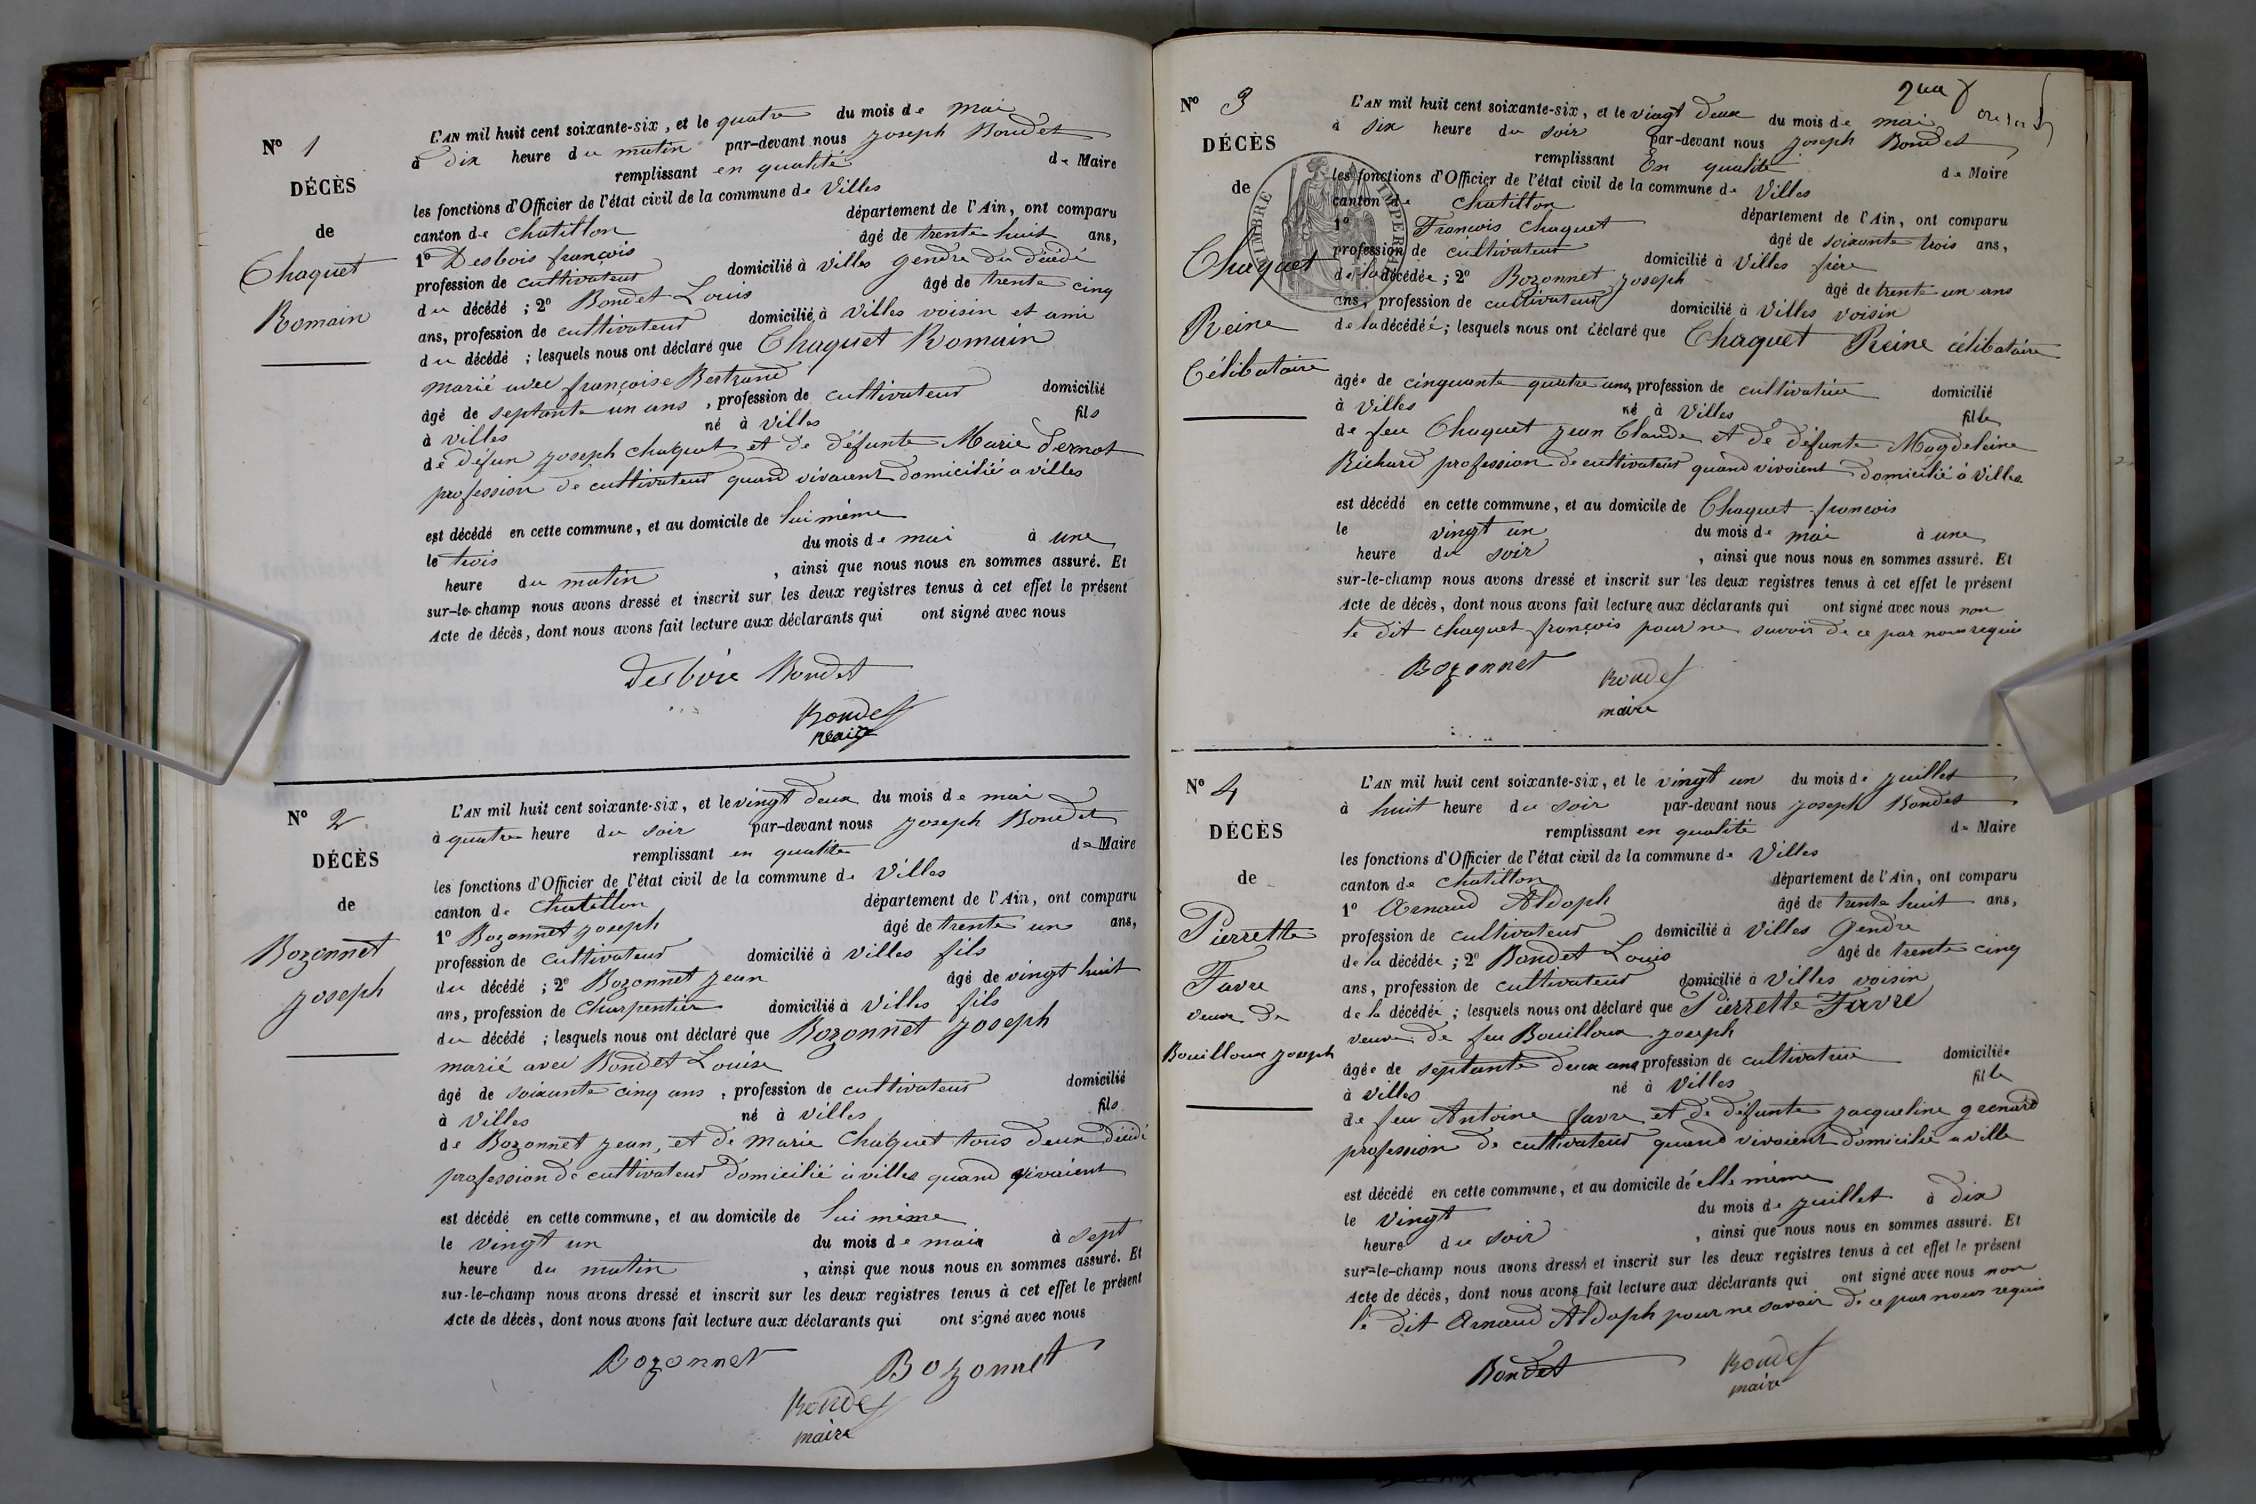 N° 1
DÉCÈS
de
Chaquet
Romain
L'AN mil huit cent soixante-six, et le quatre du mois de mai
à dix heure du matin par-devant nous joseph Bondet
remplissant en qualité de Maire
les fonctions d'Officier de l'état civil de la commune de Villes
canton de Chatillon département de l'Ain, ont comparu
1° Desbois françois âgé de trente huit ans,
profession de cultivateur domicilié à Villes gendre du décédé
du décédé ; 2° Bondet Louis âgé de trente cinq
ans, profession de cultivateur domicilié à Villes voisin et ami
du décédé ; lesquels nous ont déclaré que Chaquet Romain
marié avec françoise Bertrand
âgé de septante un ans , profession de cultivateur domicilié
à villes né à villes fils
de défun joseph chaquet et de défunte Marie
profession de cultivateur quand vivaient domicilié a villes
est décédé en cette commune, et au domicile de lui même
le trois du mois de mai à une
heure du matin , ainsi que nous nous en sommes assuré. Et
sur-le-champ nous avons dressé et inscrit sur les deux registres tenus à cet effet le présent
Acte de décès, dont nous avons fait lecture aux déclarants qui ont signé avec nous
Desbois Bondet
Bondet
maire
N° 2
DÉCÈS
de
Bozonnet
joseph
L'AN mil huit cent soixante-six, et le vingt deux du mois de mai
à quatre heure du soir par-devant nous joseph Bondet
remplissant en qualité de Maire
les fonctions d'Officier de l'état civil de la commune de Villes
canton de Chatillon département de l'Ain, ont comparu
1° Bozonnet joseph âgé de trente un ans,
profession de cultivateur domicilié à villes fils
du décédé ; 2° Bozonnet jean âgé de vingt huit
ans, profession de Charpentier domicilié à Villes fils
du décédé ; lesquels nous ont déclaré que Bozonnet joseph
marié avec Bondet Louise
âgé de soixante cinq ans , profession de cultivateur domicilié
à Villes né à villes fils
de Bozonnet jean, et de Marie Chaquet tous deux décédé
profession de cultivateur domicilié à villes quand vivaient
est décédé en cette commune, et au domicile de lui même
le vingt un du mois de mai à sept
heure du matin , ainsi que nous nous en sommes assuré. Et
sur-le-champ nous avons dressé et inscrit sur les deux registres tenus à cet effet le présent
Acte de décès, dont nous avons fait lecture aux déclarants qui ont signé avec nous
Bozonnet Bozonnet
Bondet
maire
N° 3
DÉCÈS
de
Chaquet
Reine
Célibataire
TIMBRE IMPERIAL
L'AN mil huit cent soixante-six, et le vingt deux du mois de mai
à six heure du soir par-devant nous joseph Bondet
remplissant En qualité de Maire
les fonctions d'Officier de l'état civil de la commune de Villes
canton de Chatillon département de l'Ain, ont comparu
1° François Chaquet âgé de soixante trois ans,
profession de cultivateur domicilié à Villes frère
de la décédée ; 2° Bozonnet joseph âgé de trente un ans
ans, profession de cultivateur domicilié à Villes voisin
de la décédée ; lesquels nous ont déclaré que Chaquet Reine célibataire
âgée de cinquante quatre ans, profession de cultivatrice domicilié
à Villes né à Villes fille
de feu Chaquet jean Claude et de défunte Magdeleine
Richard profession de cultivateur quand vivoient domicilié à Villes
est décédé en cette commune, et au domicile de Chaquet françois
le vingt un du mois de mai à une
heure du soir , ainsi que nous nous en sommes assuré. Et
sur-le-champ nous avons dressé et inscrit sur les deux registres tenus à cet effet le présent
Acte de décès, dont nous avons fait lecture aux déclarants qui ont signé avec nous non
le dit chaquet françois pour ne savoir de ce par nous requis
Bozonnet Bondet
maire
N° 4
DÉCÈS
de
Pierrette
Favre
veuve de
Bouilloux joseph
L'AN mil huit cent soixante-six, et le vingt un du mois de juillet
à huit heure du soir par-devant nous joseph Bondet
remplissant en qualité de Maire
les fonctions d'Officier de l'état civil de la commune de Villes
canton de Chatillon département de l'Ain, ont comparu
1° Arnaud Aldoph âgé de trente huit ans,
profession de cultivateur domicilié à Villes Gendre
de la décédée ; 2° Bondet Louis âgé de trente cinq
ans, profession de cultivateur domicilié à Villes voisin
de la décédée ; lesquels nous ont déclaré que Pierrette Favre
veuve de feu Bouilloux joseph
âgée de septante deux ans profession de cultivatrice domiciliée
à villes né à Villes fille
de feu Antoine favre et de défunte jacqueline grenard
profession de cultivateur quand vivoient domicilié a ville
est décédé en cette commune, et au domicile de elle même
le Vingt du mois de juillet à dix
heure du soir , ainsi que nous nous en sommes assuré. Et
sur-le-champ nous avons dressé et inscrit sur les deux registres tenus à cet effet le présent
Acte de décès, dont nous avons fait lecture aux déclarants qui ont signé avec nous non
le dit Arnaud Aldoph pour ne savoir de ce par nous requis
Bondet Bondet
maire